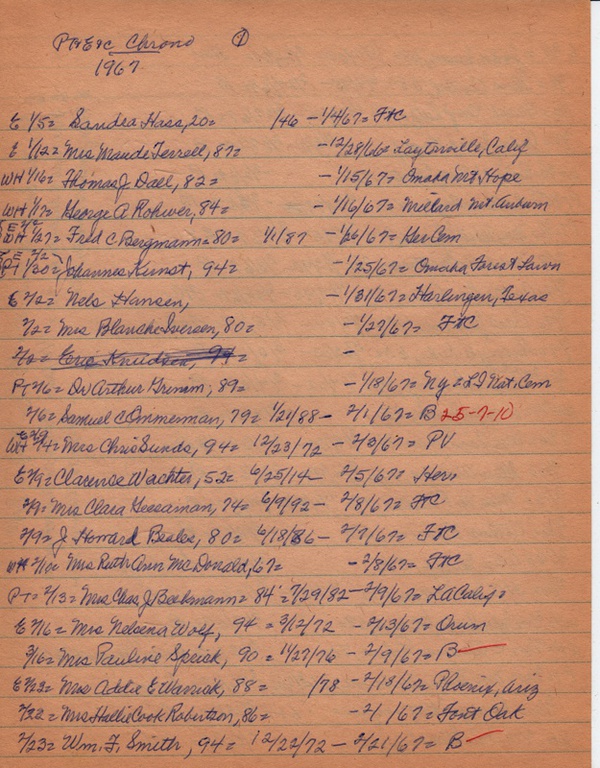 PT & E & c Chrono 1
1967
E 1/5= Sandra Hass, 20= /46 - 1/4/67= FtC
E 1/12= Mrs Maude Terrell, 87= -12/28/66= Laytonville, Calif
WH 1/16= Thomas J Dall, 82= -1/15/67= Omaha Mt. Hope
WH 1/17= George A Rohwer, 84= -1/16/67= Millard Mt. Auburn
WH 1/27= Fred C Bergmann= 80= 1/1/87 -1/26/67= Her Cem
PT 1/30= Johannes Kunst, 94= -1/25/67= Omaha Forest Lawn
E 2/2= Nels Hansen, -1/31/67= Harlingen, Texas
2/2= Mrs Blanche Iversen, 80= -1/27/67= FtC
2/2= Eric Knudsen, = -
PT 2/6= Dr Arthur Grimm, 89= -1/18/67= Ny= LI Nat. Cem
2/6= Samuel C Ommerman, 79= 1/21/88- 2/1/67= B 25-7-10
WH 2/7= Mrs Chris Sunds, 94= 12/23/72 - 2/3/67= PV
E 2/9= Clarence Wachter, 52= 6/25/14- 2/5/67= Her=
2/9= Mrs Clara Gessaman, 74= 6/9/92- 2/8/67= FtC
2/9= J Howard Beales, 80= 6/18/86- 2/7/67= FtC
WH 2/10= Mrs Ruth Ann McDonald, 67= -2/8/67= FtC
PT= 2/13= Mrs Chas. J Beekmann= 84'= 7/29/82- 2/9/67= LA Calif=
E 2/16= Mrs Nelsena Wolf, 94 = 3/12/72 - 2/13/67= Orum
2/16= Mrs Pauline Speick, 90 = 11/27/76 - 2/9/67= B
E 2/22= Mrs Addie E Warrick, 88= /78 -2/18/67= Phoenix, Ariz
2/22= Mrs Hallie Cook Robertson, 86= -2/ /67= Font Oak
2/23= Wm. F. Smith, 94= 12/22/72 - 2/21/67= B